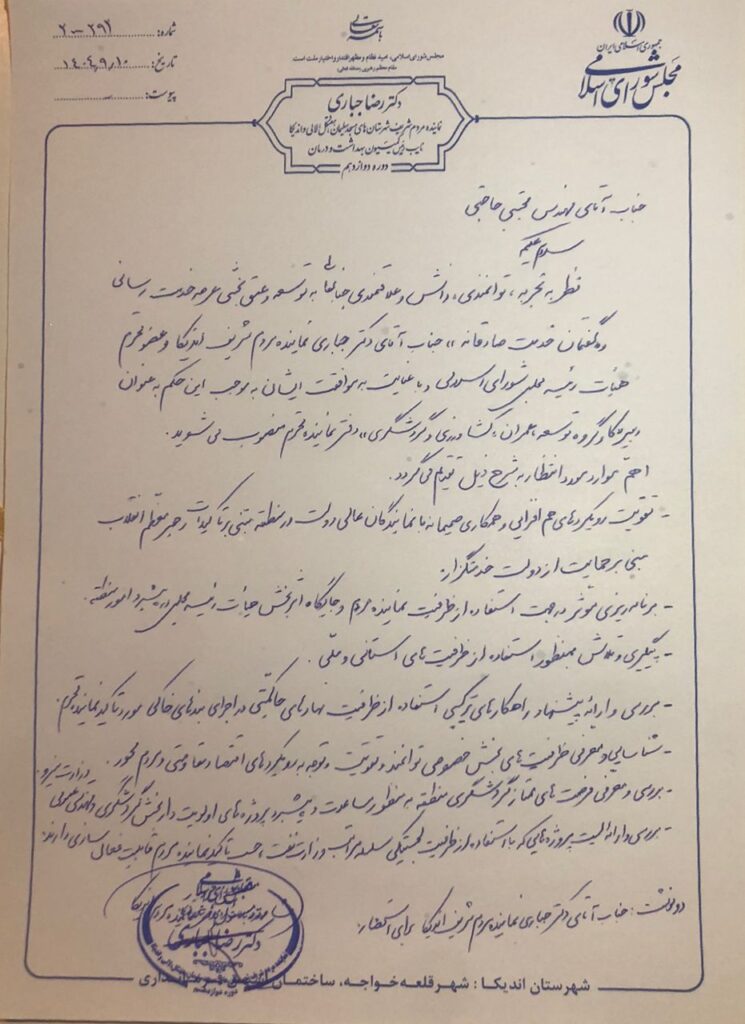 جمهوری اسلامی ایران
مجلس شورای اسلامی
باسمه تعالی
مجلس شورای اسلامی، امید نظام و مظهر اقتدار و اختیار ملت است.
مقام معظم رهبری
دکتر رضا جباری
نماینده مردم شریف شهرستان‌های مسجدسلیمان، هفتکل، لالی و اندیکا
نایب رئیس کمیسیون بهداشت و درمان
دوره دوازدهم
شماره: ۲۹۲-۲
تاریخ: ۱۴۰۴,۹,۱۰
پیوست:
جناب آقای مهندس مجتبی حاجتی
سلام علیکم
نظر به تجربه، توانمندی، دانش و علاقمندی جنابعالی به توسعه و عمق بخشی عرصه خدمت رسانی
و گفتمان خدمت صادقانه، جناب آقای دکتر جباری نماینده مردم شریف اندیکا و عضو محترم
هیئت رئیسه مجلس شورای اسلامی و با عنایت به موافقت ایشان به موجب این حکم به عنوان
دبیر کارگروه توسعه عمران، کشاورزی و گردشگری» دفتر نماینده محترم منصوب می شوید.
اهم موارد مورد انتظار به شرح ذیل تقدیم می گردد.
- تقویت رویکردهای هم افزایی و همکاری صمیمانه با نمایندگان عالی دولت در منطقه مبتنی بر تاکیدات رهبر معظم انقلاب
مبنی بر حمایت از دولت خدمتگزار.
- برنامه ریزی موثر در جهت استفاده از ظرفیت نماینده مردم و جایگاه اثربخش هیات رئیسه مجلس در پیشبرد امور منطقه.
- پیگیری و تلاش بمنظور استفاده از ظرفیت های استانی و ملی.
- بررسی و ارائه پیشنهاد و راهکارهای ترکیبی استفاده از ظرفیت نهادهای حاکمیتی در اجرای بندهای خاکی مورد تاکید نماینده محترم.
- شناسایی و معرفی ظرفیت های بخش خصوصی توانمند و تقویت و توجه به رویکردهای اقتصاد مقاومتی و مردم محور.
- بررسی و معرفی فرصت های ممتاز گردشگری منطقه به منظور مساعدت و پیشبرد پروژه های اولویت دار بخش گردشگری وزارت نیرو.
- بررسی و ارائه لیست پروژه هایی که با استفاده از ظرفیت سلسله مراتب وزارت نفت، حسب تاکید نماینده مردم قابلیت فعال سازی دارند.
رونوشت: جناب آقای دکتر جباری نماینده مردم شریف اندیکا برای استحضار.
دکتر رضا جباری
شهرستان اندیکا: شهر قلعه خواجه، ساختمان